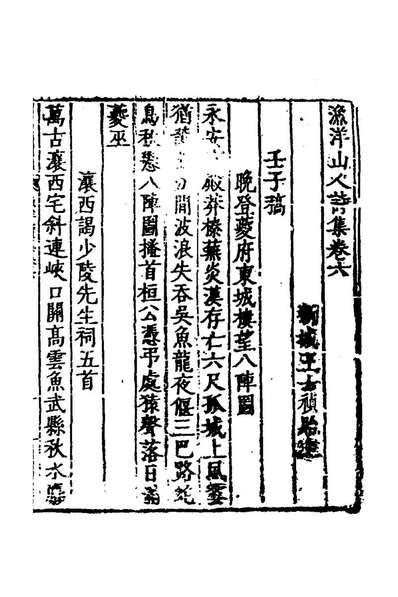 漁洋山人詩集卷六
新城王士禎貽上
壬子稿
晚登夔府東城樓望八陣圖
永安殿莽榛蕪炎漢存亡六尺孤城上風雲
猶間波浪失吞吳魚龍夜偃三巴路蛇
鳥秋懸八陣圖搔首桓公憑弔處猿聲落日滿
夔巫
瀼西謁少陵先生祠五首
萬古瀼西宅斜連峽口關高雲魚武縣秋水